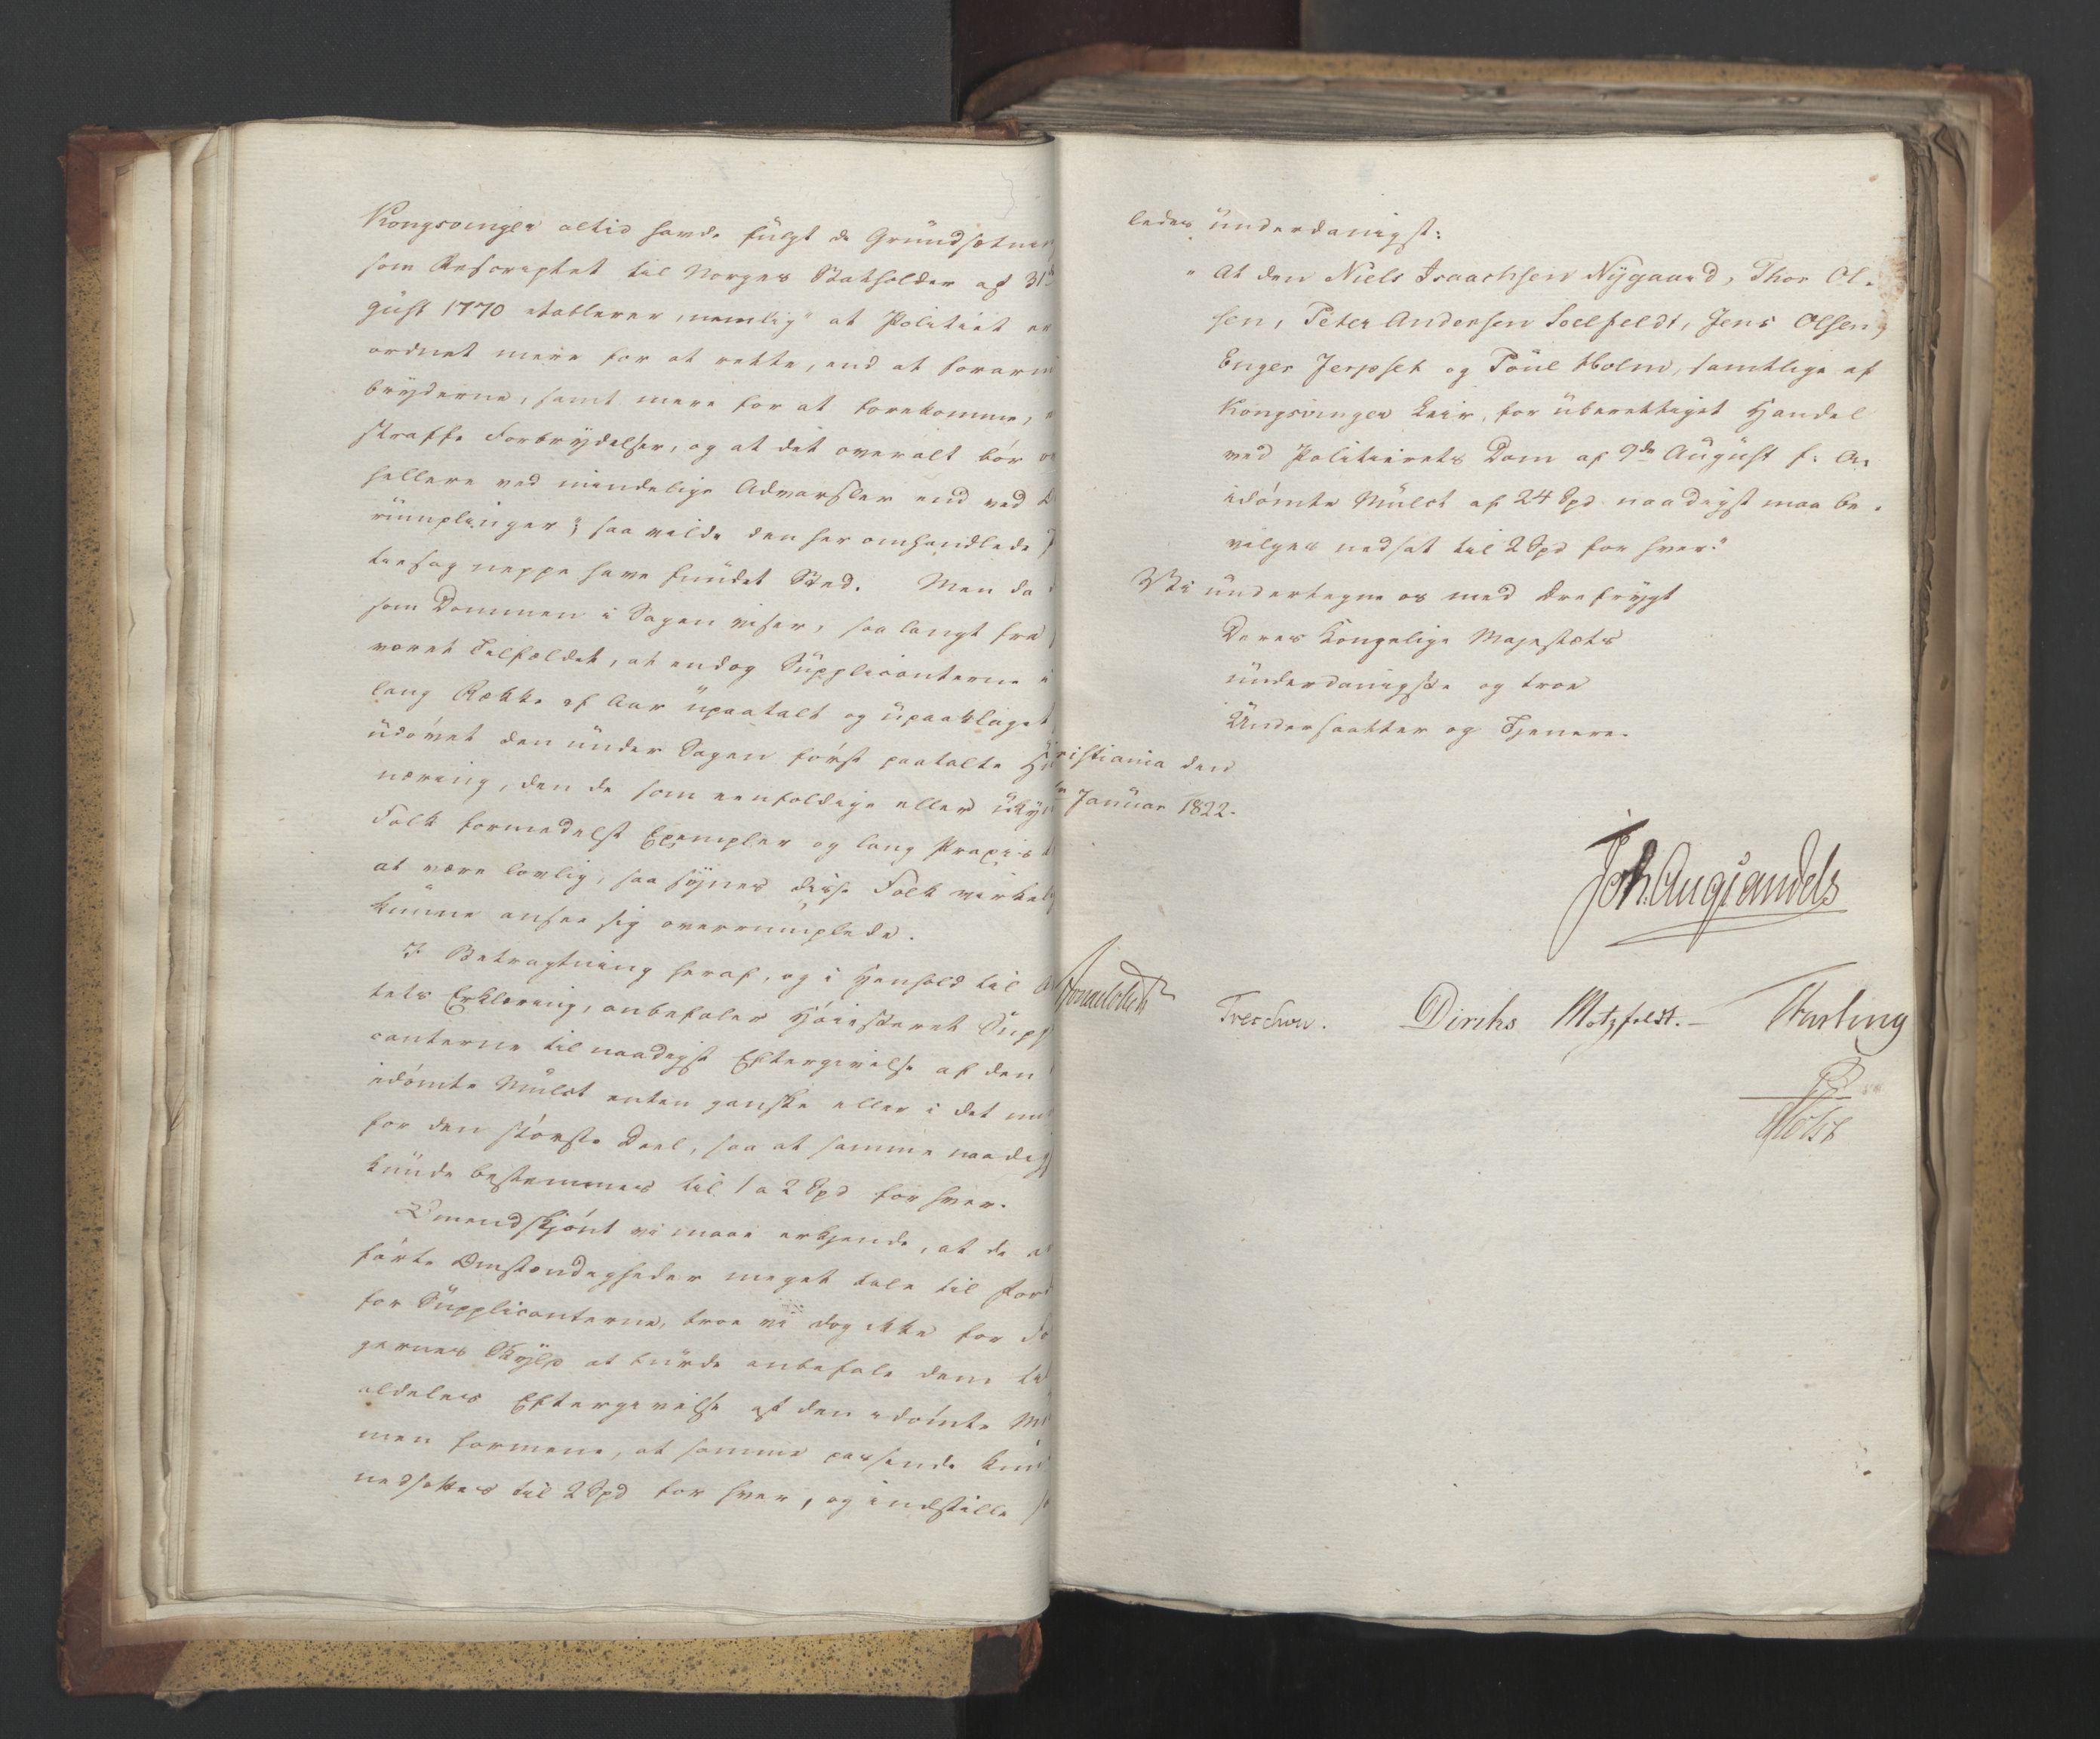 Kongsvinger altid havde fulgt de Grundsætnin
som Rescriptet til Norges Statholder af 31te
gust 1770 etablerer, nemlig "at Politiet er
ordnet mere for at rette, end at forarm
bryderne, samt mere for at forekomme,
straffe Forbrydelser, og at det overalt bör
hellere ved mindelige Advarsler end ved
rumplinger"; saa vilde den her omhandlede
tiesag neppe have fundet Sted. Men da
som Dommen i Sagen viser, saa langt fra
været Tilfældet, at endog Supplicanterne
lang Række af Aar upaatalt og upaaklaget
udövet den under Sagen först paatalte
næring, den de som eenfoldige eller ukyn
Folk formedelst Exempler og lang Praxis
at være lovlig, saa synes disse Folk virkelig
kunne ansee sig overrumplede.
I Betragtning heraf, og i Henhold til
tets Erklæring, anbefaler Höiesteret Supp
canterne til naadigst Eftergivelse af den
idömte Mulct enten ganske eller i det min
for den störste Deel, saa at samme naadigst
kunde bestemmes til 1 a 2 Spd for hver.
Omendskjönt vi maae erkjende, at de
förte Omstændigheder meget tale til For
for Supplicanterne, troe vi dog ikke for Fö
gernes Skyld at burde anbefale dem til
aldeles Eftergivelse af den idömte M
men formene, at samme passende kun
nedsættes til 2 Spd for hver, og indstille
ledes underdanigst:
"At den Niels Isaachsen Nygaard, Thor Ol-
sen, Peter Andersen Soelfeldt, Jens Olsen,
Enger Jerpset og Poul Holm, samtlige af
Kongsvinger Leir, for uberettiget Handel
ved Politierets Dom af 9de August f: A:
idömte Mulct af 24 Spd naadigst maa be-
vilges nedsat til 2 Spd for hver."
Vi undertegne os med Ærefrygt
Deres Kongelige Majestæts
underdanigste og troe
Undersaatter og Tjenere.
ristiania den
Januar 1822.
Joh. Aug. Sandels
Sommerhielm
Treschow. Diriks Motzfeldt. Fasting
Holst